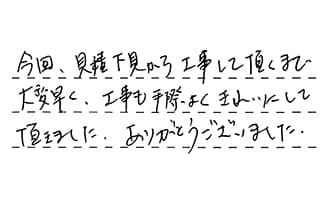 今回、見積下見から工事して頂くまで
大変早く、工事も手際よくきれいにして
頂きました。ありがとうございました。